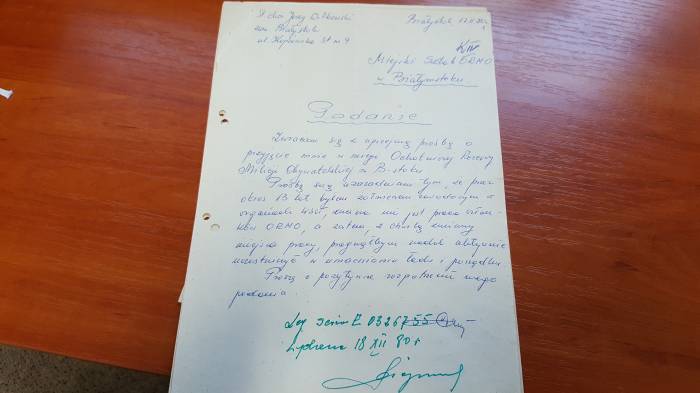 St. chor. Jerzy
zam. Białystok
ul. 9
Białystok
K IV
Miejski Sztab ORMO
w Białymstoku
Podanie
Zwracam się z uprzejmą prośbą o
przyjęcie mnie w szeregi Ochotniczej Rezerwy
Milicji Obywatelskiej w B-stoku
Prośbę swą uzasadniam tym, że przez
okres 13 lat byłem żołnierzem zawodowym w
organach WSW, znana mi jest praca człon-
ków ORMO, a zatem, z chwilą zmiany
miejsca pracy pragnąłbym nadal aktywnie
uczestniczyć w umacnianiu ładu i porządku.
Proszę o pozytywne rozpatrzenie mego
podania.
Leg seria E 0326755
18 XII 80 r